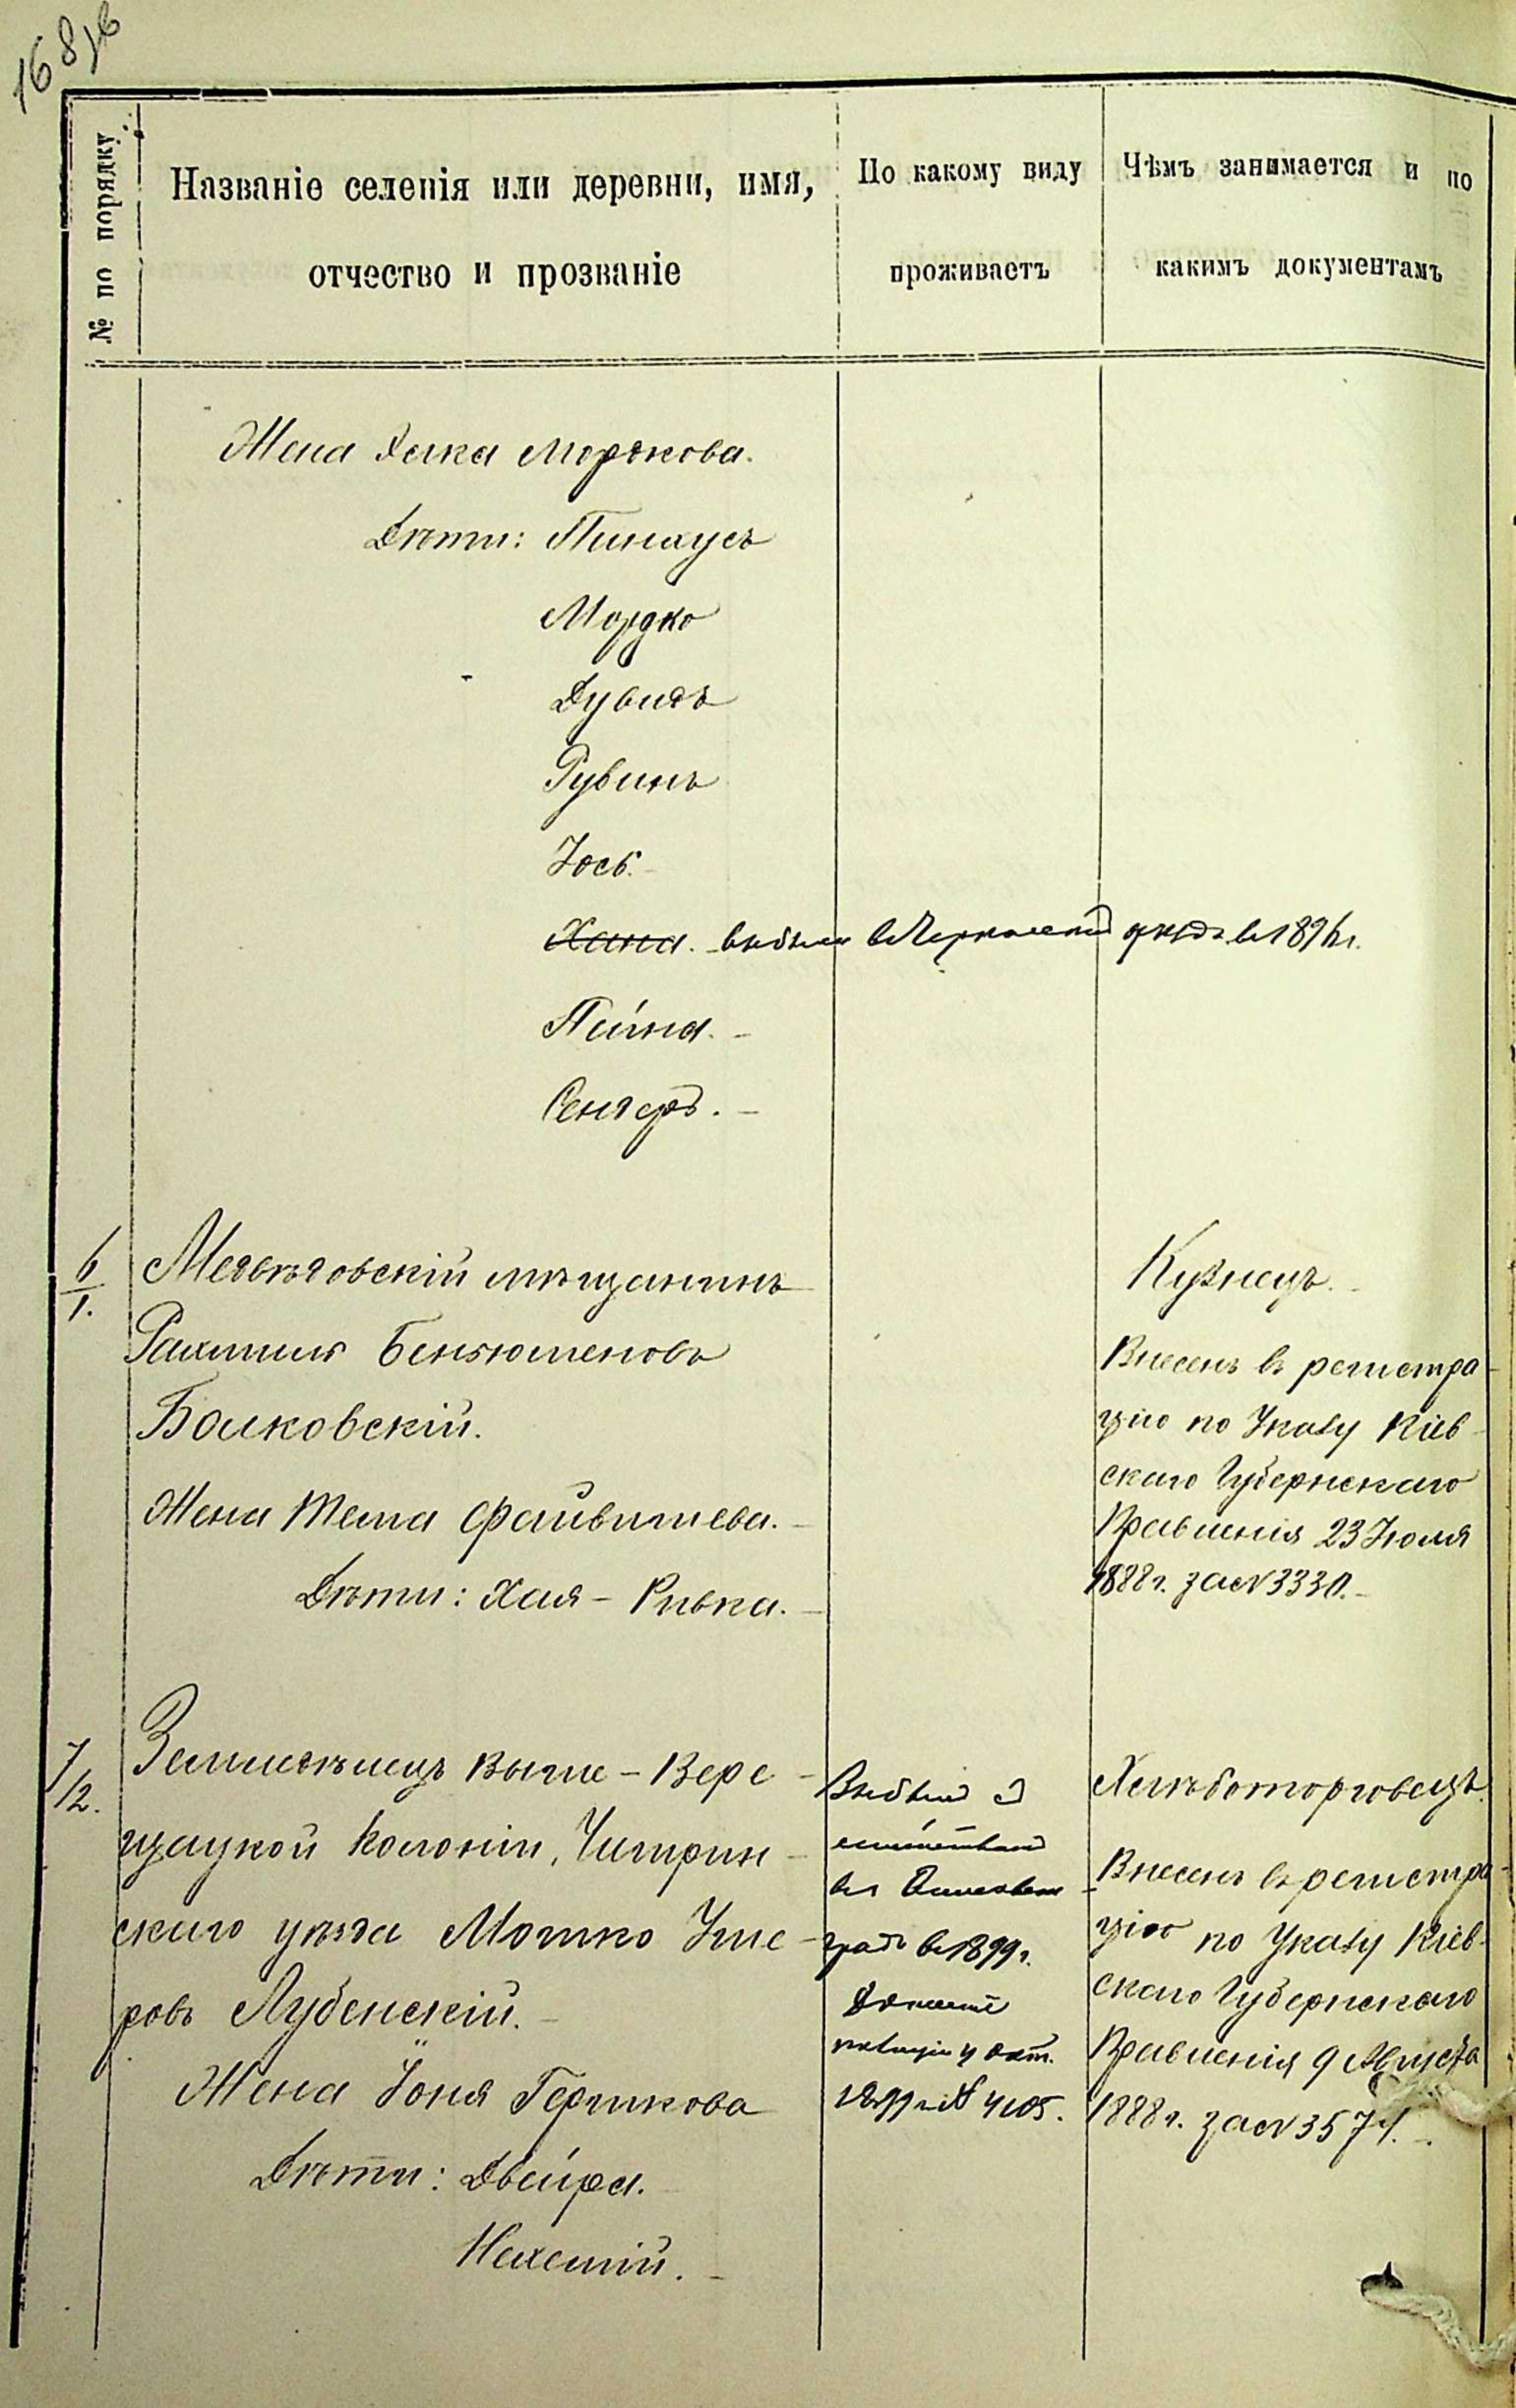 168об
№ по порядку
Названіе селенія или деревни, имя,
отчество и прозваніе
По какому виду
проживаетъ
Чѣмъ занимается и по
какимъ документамъ
Жена Хайка Мордкова.
Дѣти: Пинхусъ
Мордко
Дувидъ
Рувинъ
Іось.
Хана. выбыла въ Черкасскій уѣздъ въ 1896 г.
Пейна.
Сендеръ.
6/1.
Медвѣдовскій мѣщанинъ
Рахмиль Беньюменовъ
Балковскій.
Жена Тема Файвишева.
Дѣти: Хая-Ривка.
Кузнецъ.
Внесенъ въ регистра-
цію по Указу Кіев-
скаго Губернскаго
Правленія 23 Іюля
1888 г. за № 3330.
7/2.
Земледѣлецъ Выше-Вере-
щацкой колоніи, Чигрин-
скаго уѣзда Мошко Уше-
ровъ Лубенскій.
Жена Йоня Гершкова
Дѣти: Двейра.
Нахемій.
Выбылъ съ
семействомъ
въ Елисавет-
градъ въ 1899 г.
полиціи 4 Окт.
1899 г. № 4105.
Хлѣботорговецъ.
Внесенъ въ регистра-
цію по Указу Кіев-
скаго Губернскаго
Правленія 9 Августа
1888 г. за № 3574.